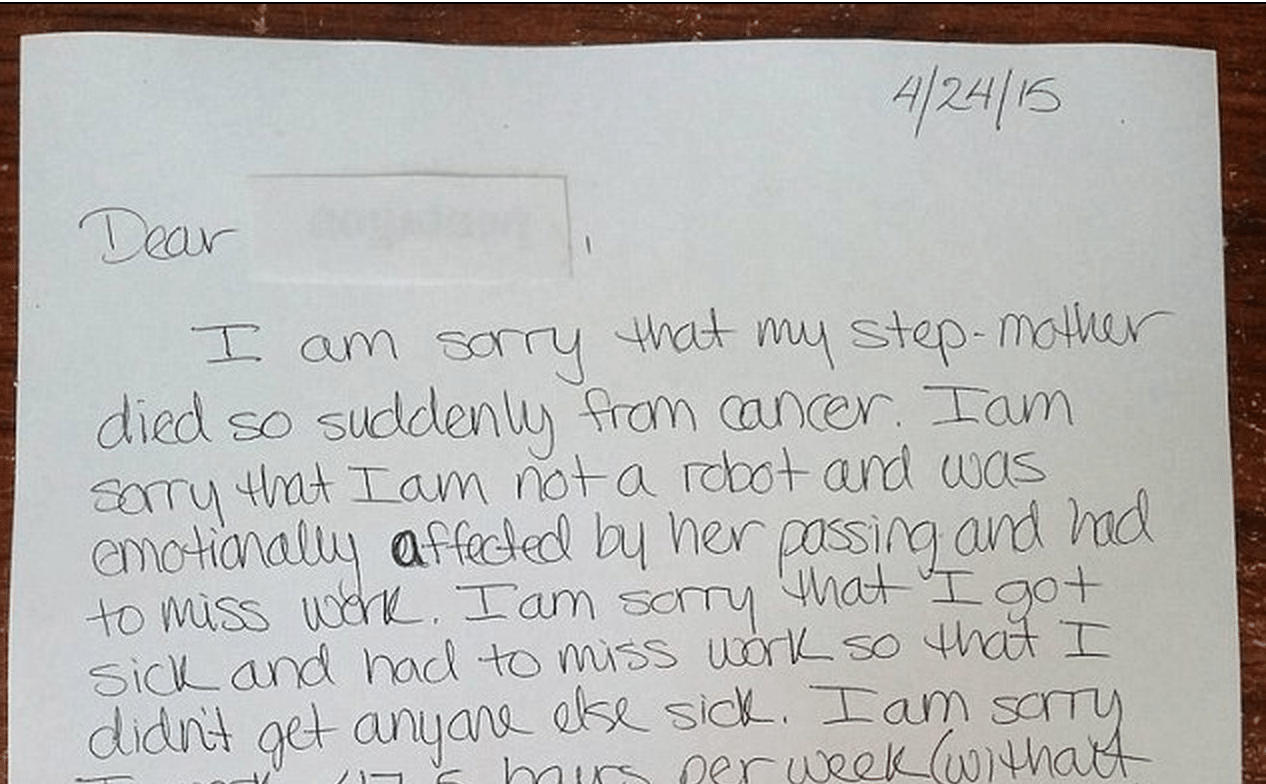 4/24/15
Dear ,
I am sorry that my step-mother
died so suddenly from cancer. I am
sorry that I am not a robot and was
emotionally affected by her passing and had
to miss work. I am sorry that I got
sick and had to miss work so that I
didn't get anyone else sick. I am sorry
I work 47.5 hours per week (without